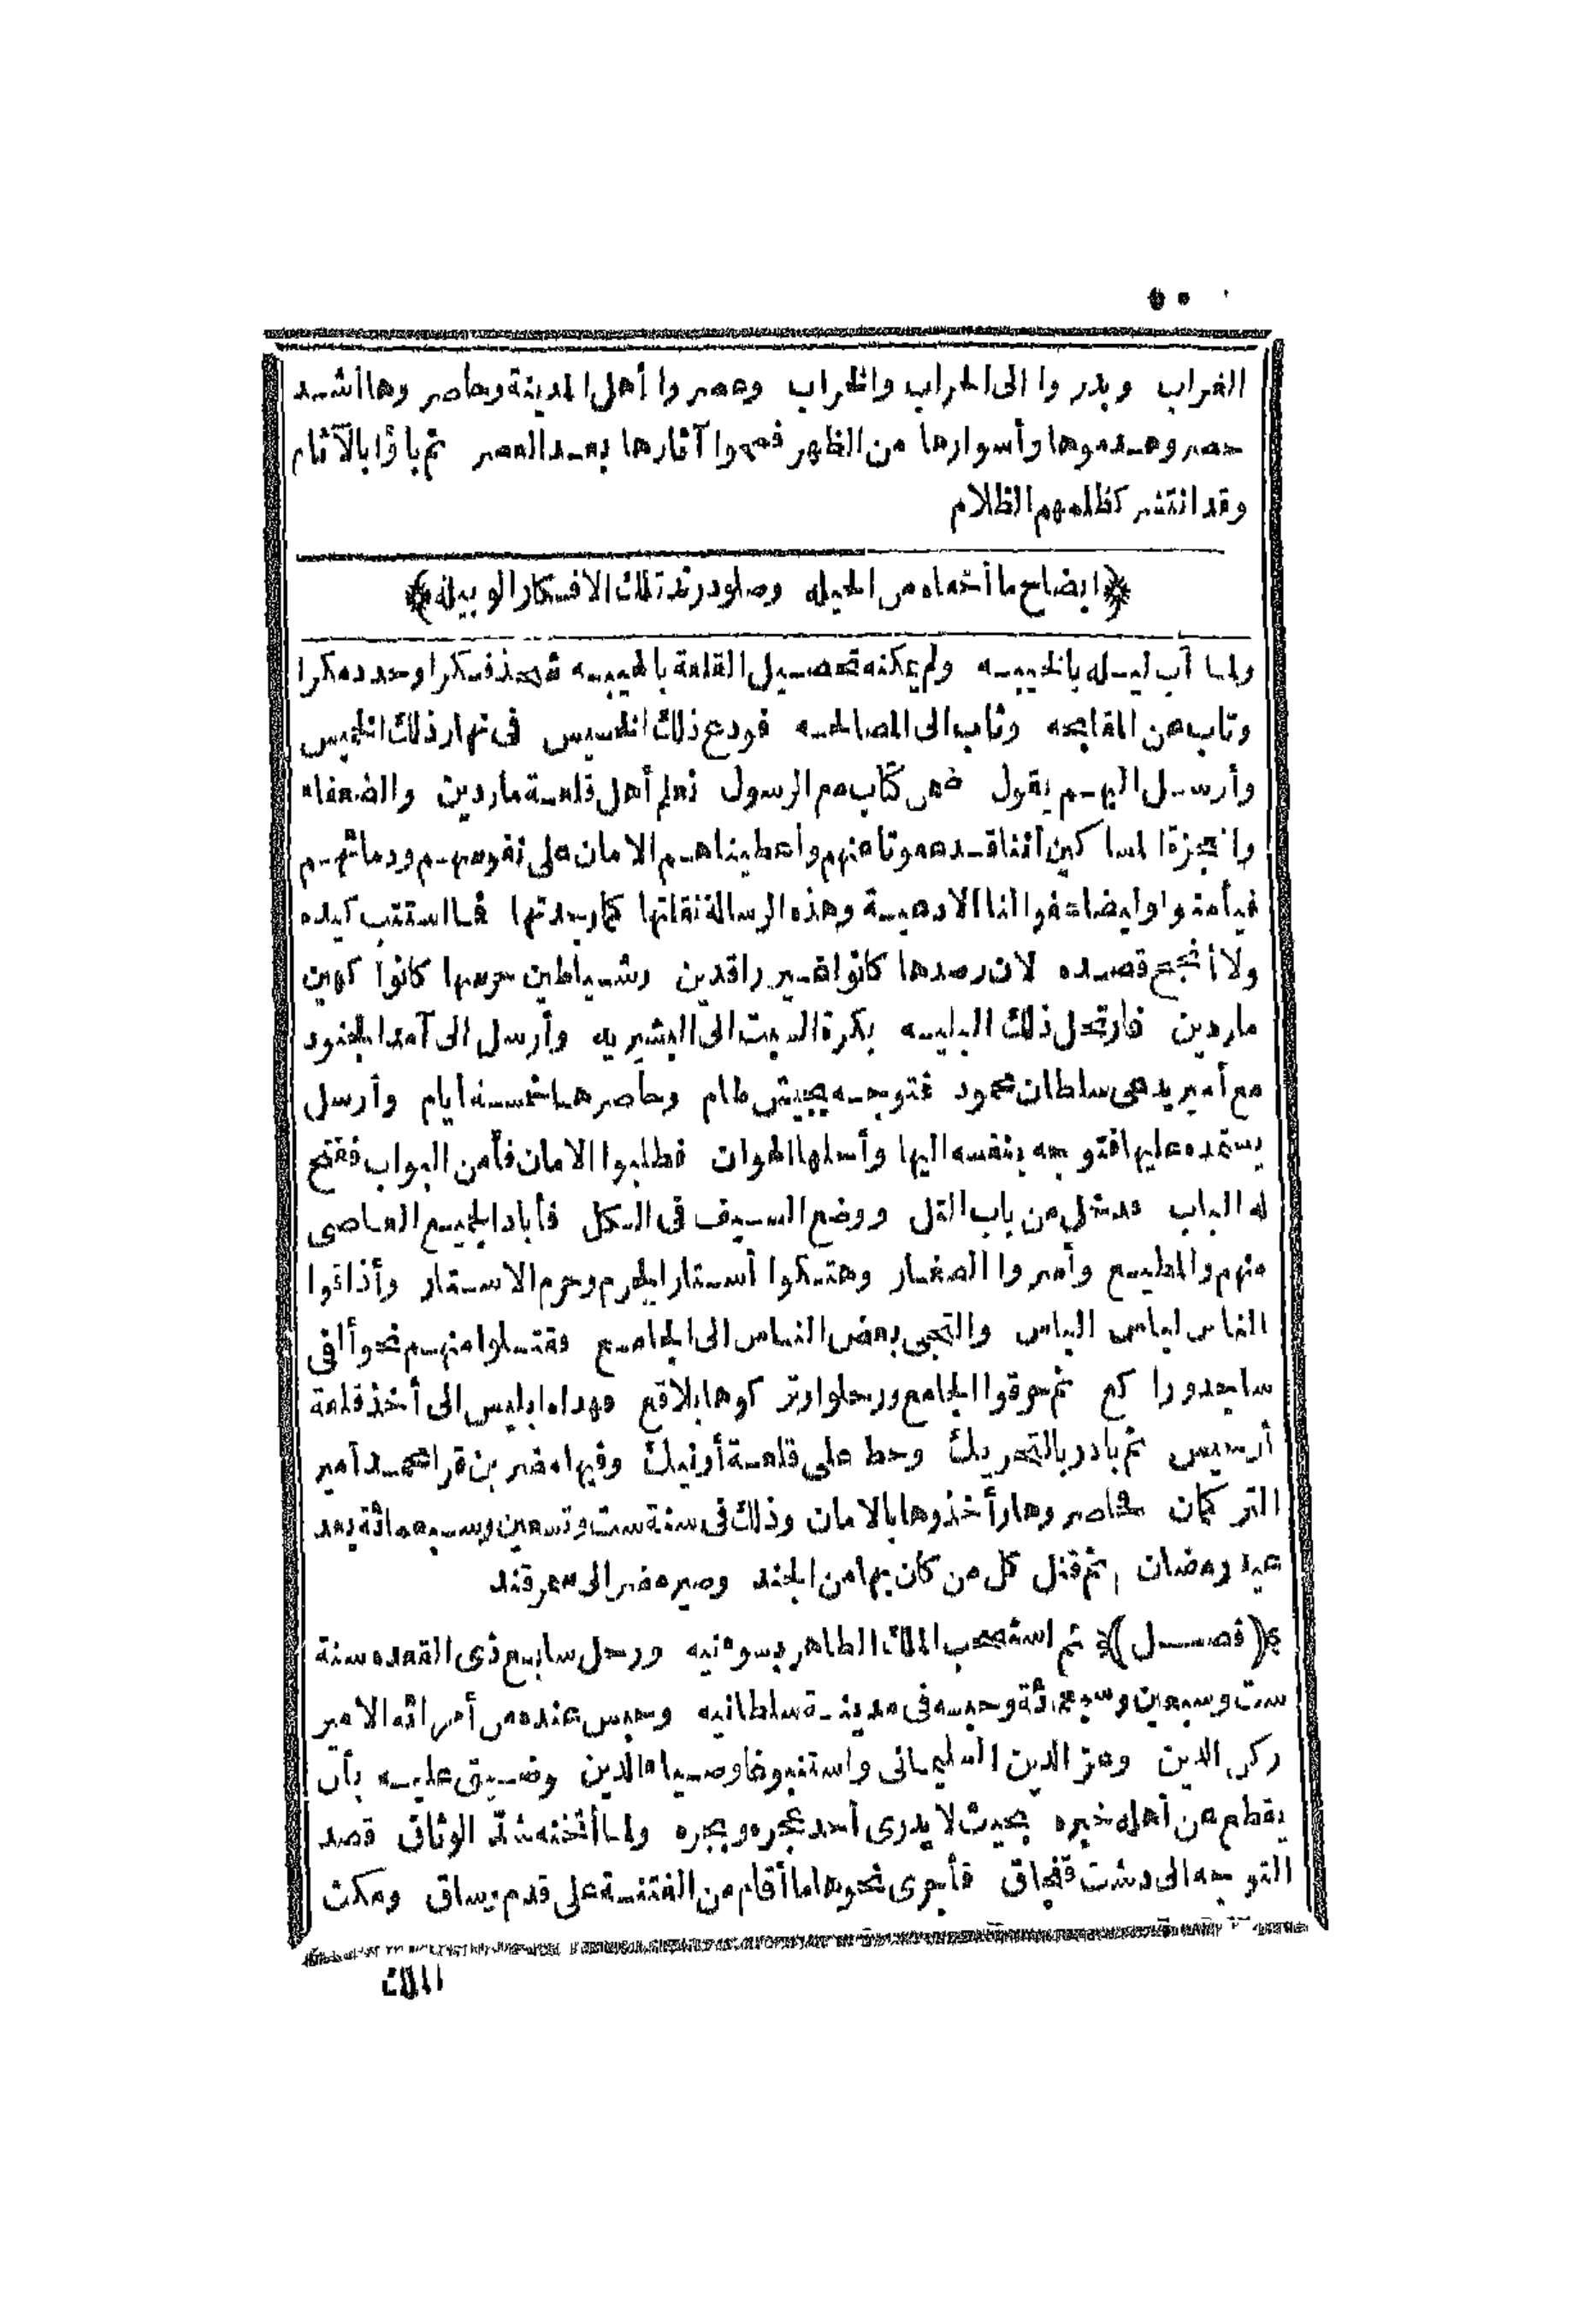 ٥٠
الغراب وبدروا الى الحراب والخراب وعصروا أهل المدينة وحاصروها أشد
حصر وهدموها وأسوارها من الظهر فمحوا آثارها بعد العصر ثم باؤا بالآثام
وقد انتشر كظلمهم الظلام
﴿ايضاح ما أخفاه من الحيله وصلود زند تلك الافكار الوبيله﴾
ولما آب ليله بالخيبه ولم يمكنه تحصيل القلعة بالهيبه شحذ فكرا وحدد مكرا
وتاب عن المقابحه وثاب الى المصالحه فودع ذلك الخسيس فى نهار ذلك الخميس
وأرسل اليهم يقول ضمن كتاب مع الرسول نعلم أهل قلعة ماردين والضعفاء
والعجزة المساكين أننا قد عفونا عنهم وأعطيناهم الامان على نفوسهم ودمائهم
فيأمنوا وليضاعفوا لنا الادعية وهذه الرسالة نقلتها كما وجدتها فما استتب كيده
ولا أنجح قصده لان رصدها كانوا غير راقدين وشياطين حرسها كانوا كهين
ماردين فارتحل ذلك البليه بكرة السبت الى البشيريه وأرسل الى آمد الجنود
مع أمير يدعى سلطان محمود فتوجه بجيش طام وحاصرها خمسة أيام وأرسل
يستمده عليها فتوجه بنفسه اليها وأسلمها الهوان فطلبوا الامان فأمن البواب ففتح
له الباب فدخل من باب التل ووضع السيف فى الكل فأباد الجميع العاصى
منهم والمطيع وأسروا الصغار وهتكوا أستار الحرم وحرم الاستار وأذاقوا
الناس لباس الباس والتجى بعض الناس الى الجامع فقتلوا منهم نحو ألفى
ساجد وراكع ثم حرقوا الجامع ورحلوا وتركوها بلاقع فهداه ابليس الى أخذ قلعة
أرجيس ثم بادر بالتحريك وحط على قلعة أونيك وفيها مضر بن قرا محمد أمير
التركمان فحاصروها وأخذوها بالامان وذلك فى سنة ست وتسعين وسبعمائة بعد
عيد رمضان ثم قتل كل من كان بها من الجند وصير مضر الى سمرقند
﴿(فصل)﴾ ثم استصحب الملك الظاهر بسوء نيه ورحل سابع ذى القعده سنة
ست وسبعين وسبعمائة وحبسه فى مدينة سلطانيه وحبس عنده من أمرائه الامير
ركن الدين وعز الدين السليمانى واستنبوغا وضياء الدين وضيق عليه بأن
يقطع عن أهله خبره بحيث لا يدرى أحد عجره وبجره ولما أثخنه شد الوثاق قصد
التوجه الى دشت قفجاق فأجرى نحوها ما أقام من الفتنة على قدم وساق ومكث
الملك